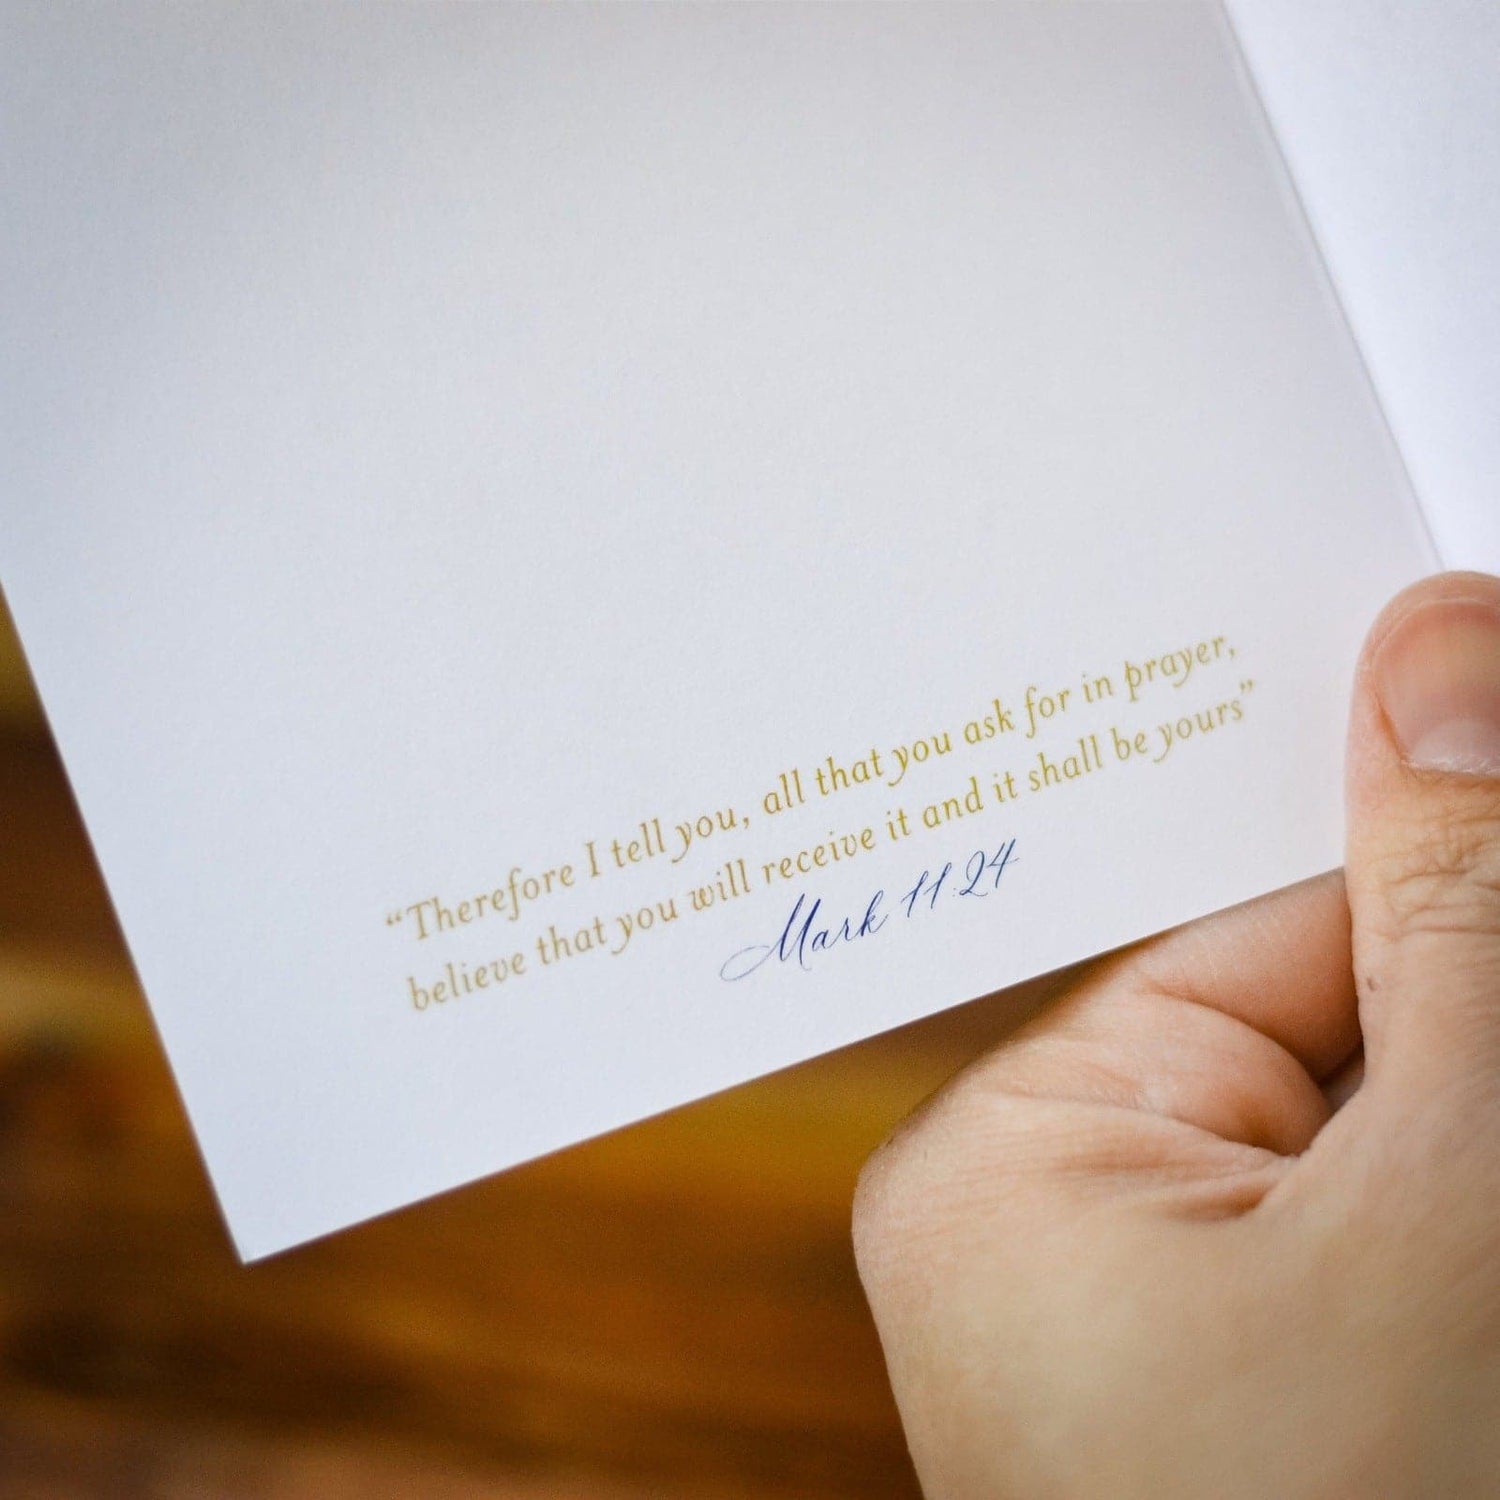 “Therefore I tell you, all that you ask for in prayer,
believe that you will receive it and it shall be yours”
Mark 11:24